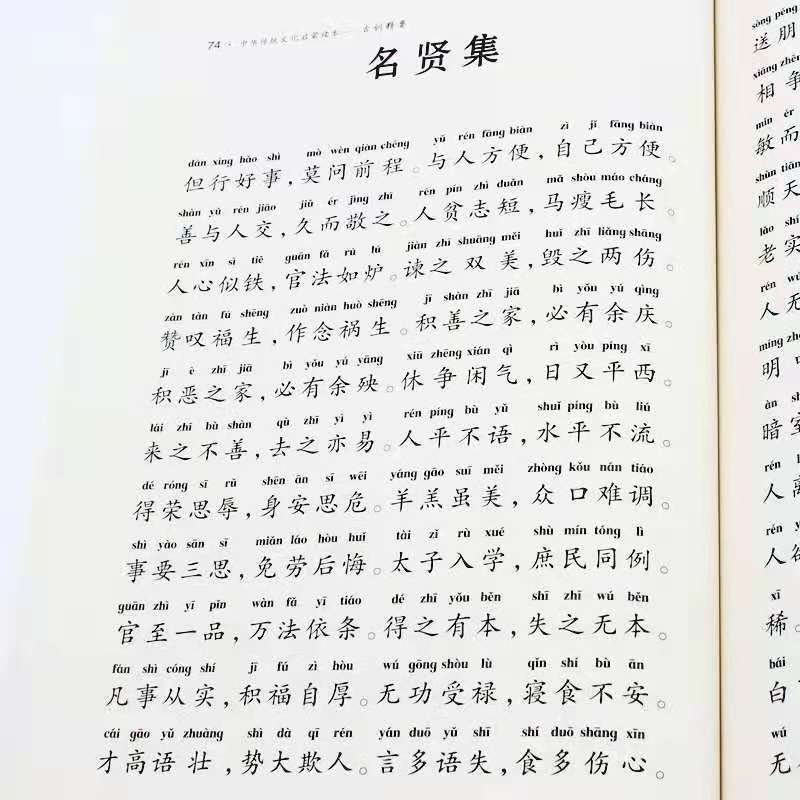 74 · 中华传统文化启蒙读本——古训释bed
名贤集
dàn xíng hǎo shì mò wèn qián chéng yǔ rén fāng biàn zì jǐ fāng biàn
但行好事,莫问前程。与人方便,自己方便。
shàn yǔ rén jiāo jiǔ ér jìng zhī rén pín zhì duǎn mǎ shòu máo cháng
善与人交,久而敬之。人贫志短,马瘦毛长。
rén xīn sì tiě guān fǎ rú lú jiàn zhī shuāng měi huǐ zhī liǎng shāng
人心似铁,官法如炉。谏之双美,毁之两伤。
zàn tàn fú shēng zuò niàn huò shēng jī shàn zhī jiā bì yǒu yú qìng
赞叹福生,作念祸生。积善之家,必有余庆。
jī è zhī jiā bì yǒu yú yāng xiū zhēng xián qì rì yòu píng xī
积恶之家,必有余殃。休争闲气,日又平西。
lái zhī bù shàn qù zhī yì yì rén píng bù yǔ shuǐ píng bù liú
来之不善,去之亦易。人平不语,水平不流。
dé róng sī rǔ shēn ān sī wēi yáng gāo suī měi zhòng kǒu nán tiáo
得荣思辱,身安思危。羊羔虽美,众口难调。
shì yào sān sī miǎn láo hòu huǐ tài zǐ rù xué shù mín tóng lì
事要三思,免劳后悔。太子入学,庶民同例。
guān zhì yī pǐn wàn fǎ yī tiáo dé zhī yǒu běn shī zhī wú běn
官至一品,万法依条。得之有本,失之无本。
fán shì cóng shí jī fú zì hòu wú gōng shòu lù qǐn shí bù ān
凡事从实,积福自厚。无功受禄,寝食不安。
cái gāo yǔ zhuàng shì dà qī rén yán duō yǔ shī shí duō shāng xīn
才高语壮,势大欺人。言多语失,食多伤心。
sòng péng
送朋
xiāng zhēng
相争
mǐn ér
敏而
shùn tiān
顺天
lǎo shí
老实
rén wú
人无
míng
明
àn shì
暗室
rén lí
人离
rén
人
xī
稀。
bái
白
wú
无